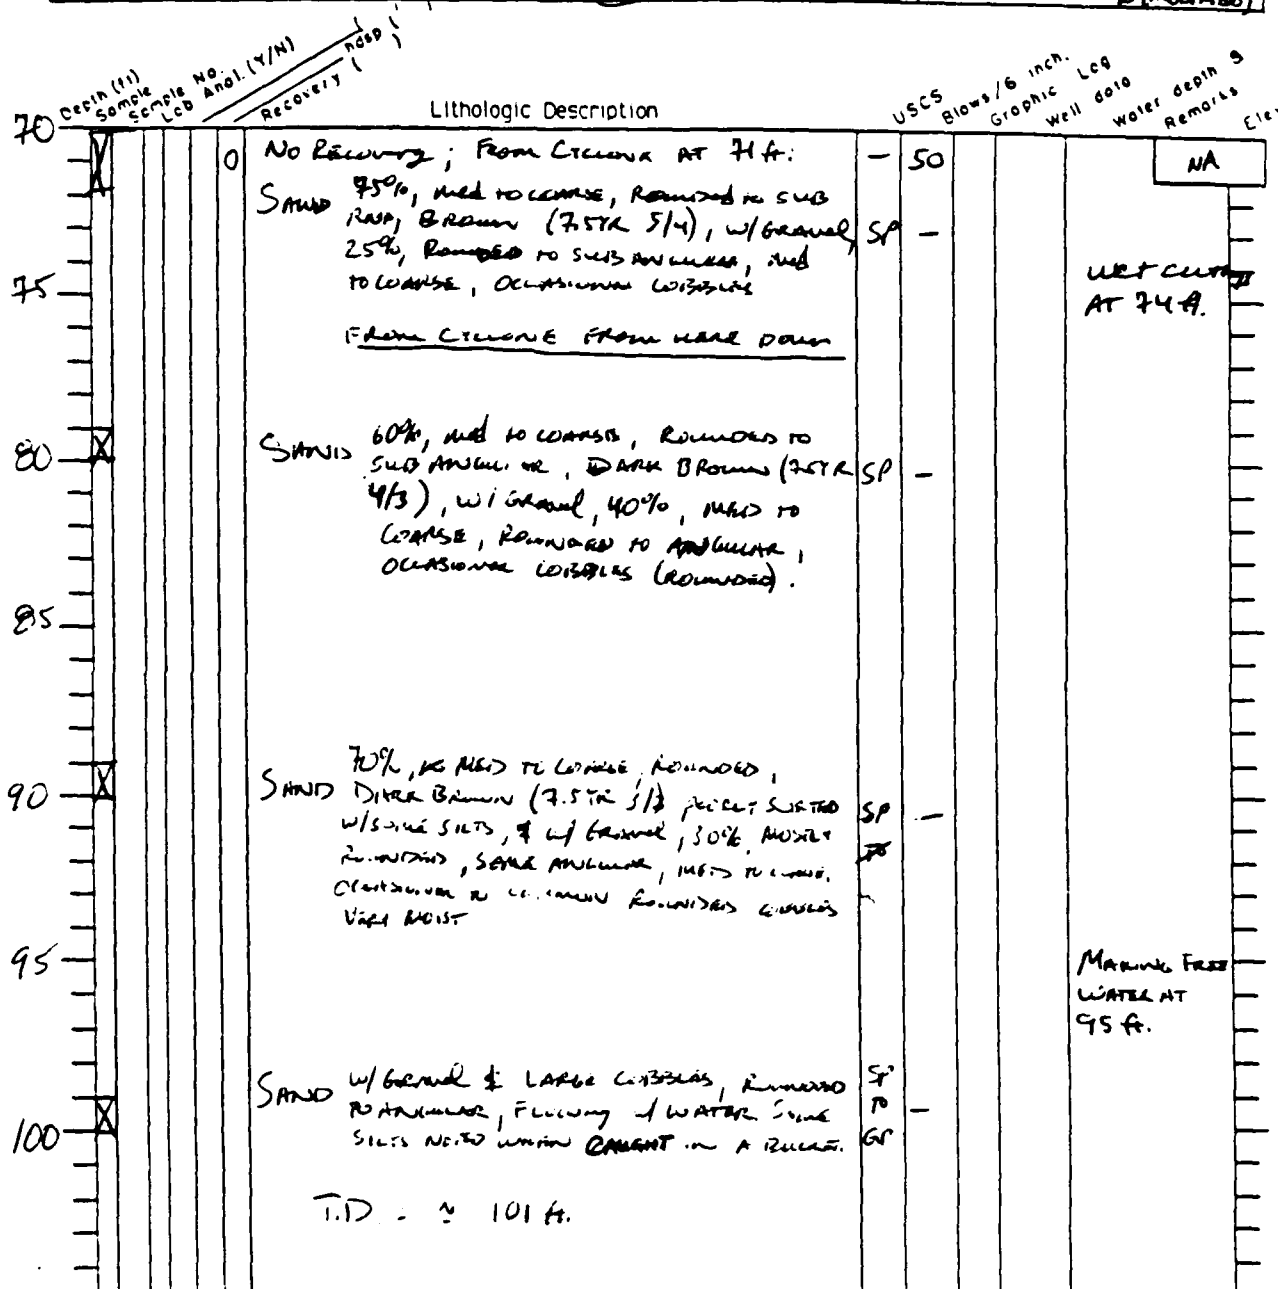 Depth (ft)
Sample
Sample No.
Lab Anal. (Y/N)
Recovery (
Lithologic Description
USCS
Blows/6 inch.
Graphic Log
Well data
Water depth
Remarks
70
0
No Recovery; From Cyclone at 71 ft:
- 50
NA
SAND 75%, med to coarse, Rounded to sub
Rnd, Brown (7.5YR 5/4), w/ Gravel, SP -
25%, Rounded to sub angular, med
to coarse, occasional cobbles
75
wet
AT 74 ft.
From Cyclone from here down
80
SAND 60%, med to coarse, Rounded to
sub angular, Dark Brown (7.5YR SP -
4/3), w/ Gravel, 40%, med to
coarse, Rounded to Angular,
occasional cobbles (rounded).
85
90
SAND 70%, med to coarse, rounded,
Dark Brown (7.5YR poorly sorted SP -
w/ some silts, w/ Gravel, 30%, mostly
rounded, some angular, med to coarse,
occasional to common rounded cobbles
Very moist
95
Making Free
Water at
95 ft.
SAND w/ Gravel & Large Cobbles, rounded SP
to angular, flowing w/ water some TO -
silts noted when caught in a bucket. GP
100
T.D. - ~ 101 ft.